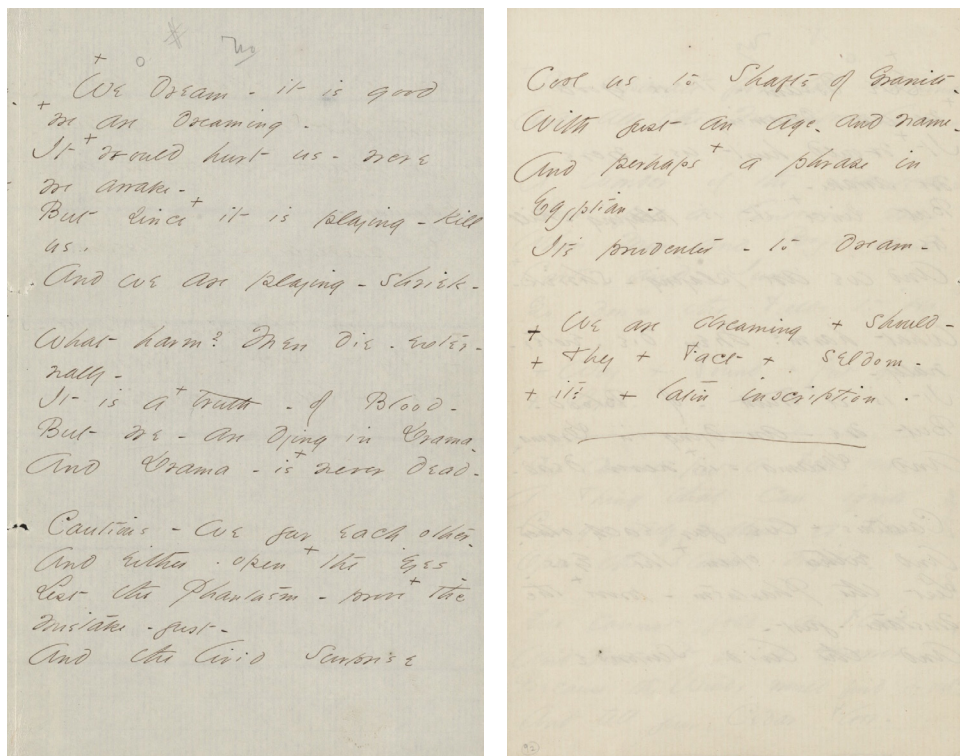 We dream - it is good
+ we are dreaming -
It + would hurt us - were
we awake -
But since + it is playing - kill
us -
And we are playing - shriek -
What harm? Men die - Exter-
nally -
It is a + truth - of Blood -
But we - are dying in Drama
And Drama - is + never dead -
Cautious - We jar each other -
And either - open + the Eyes
Lest the Phantasm - prove + the
mistake - just -
And the livid Surprise
Cool us to Shafts of Granite -
With just an age - and name -
And perhaps + a phrase in
Egyptian -
It's prudenter - to dream -
+ We are dreaming + should -
+ They + Fact + seldom -
+ its + latin inscription -